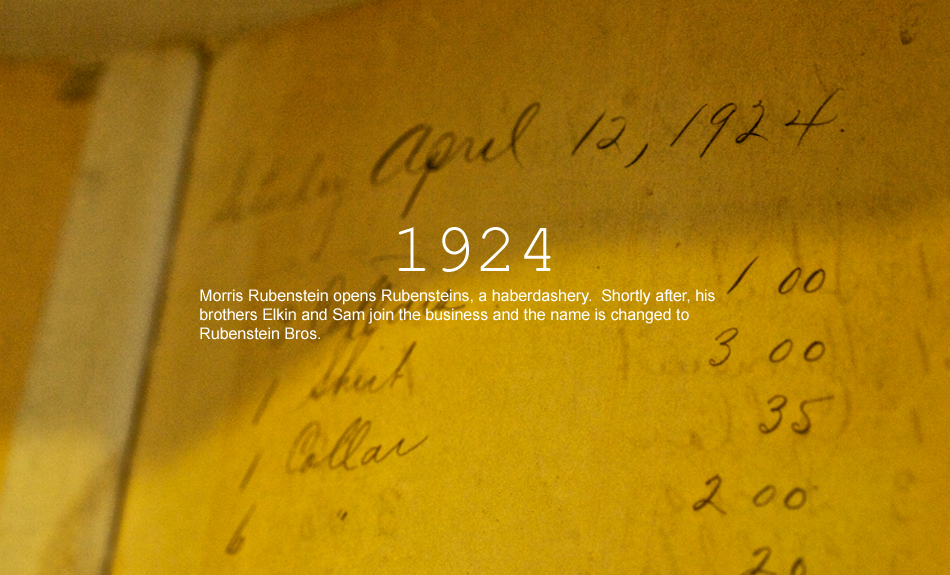 April 12, 1924.
1924
1 00
Morris Rubenstein opens Rubensteins, a haberdashery.  Shortly after, his
brothers Elkin and Sam join the business and the name is changed to
Rubenstein Bros.
3 00
1 Shirt
35
1 Collar
2 00
6 "
20